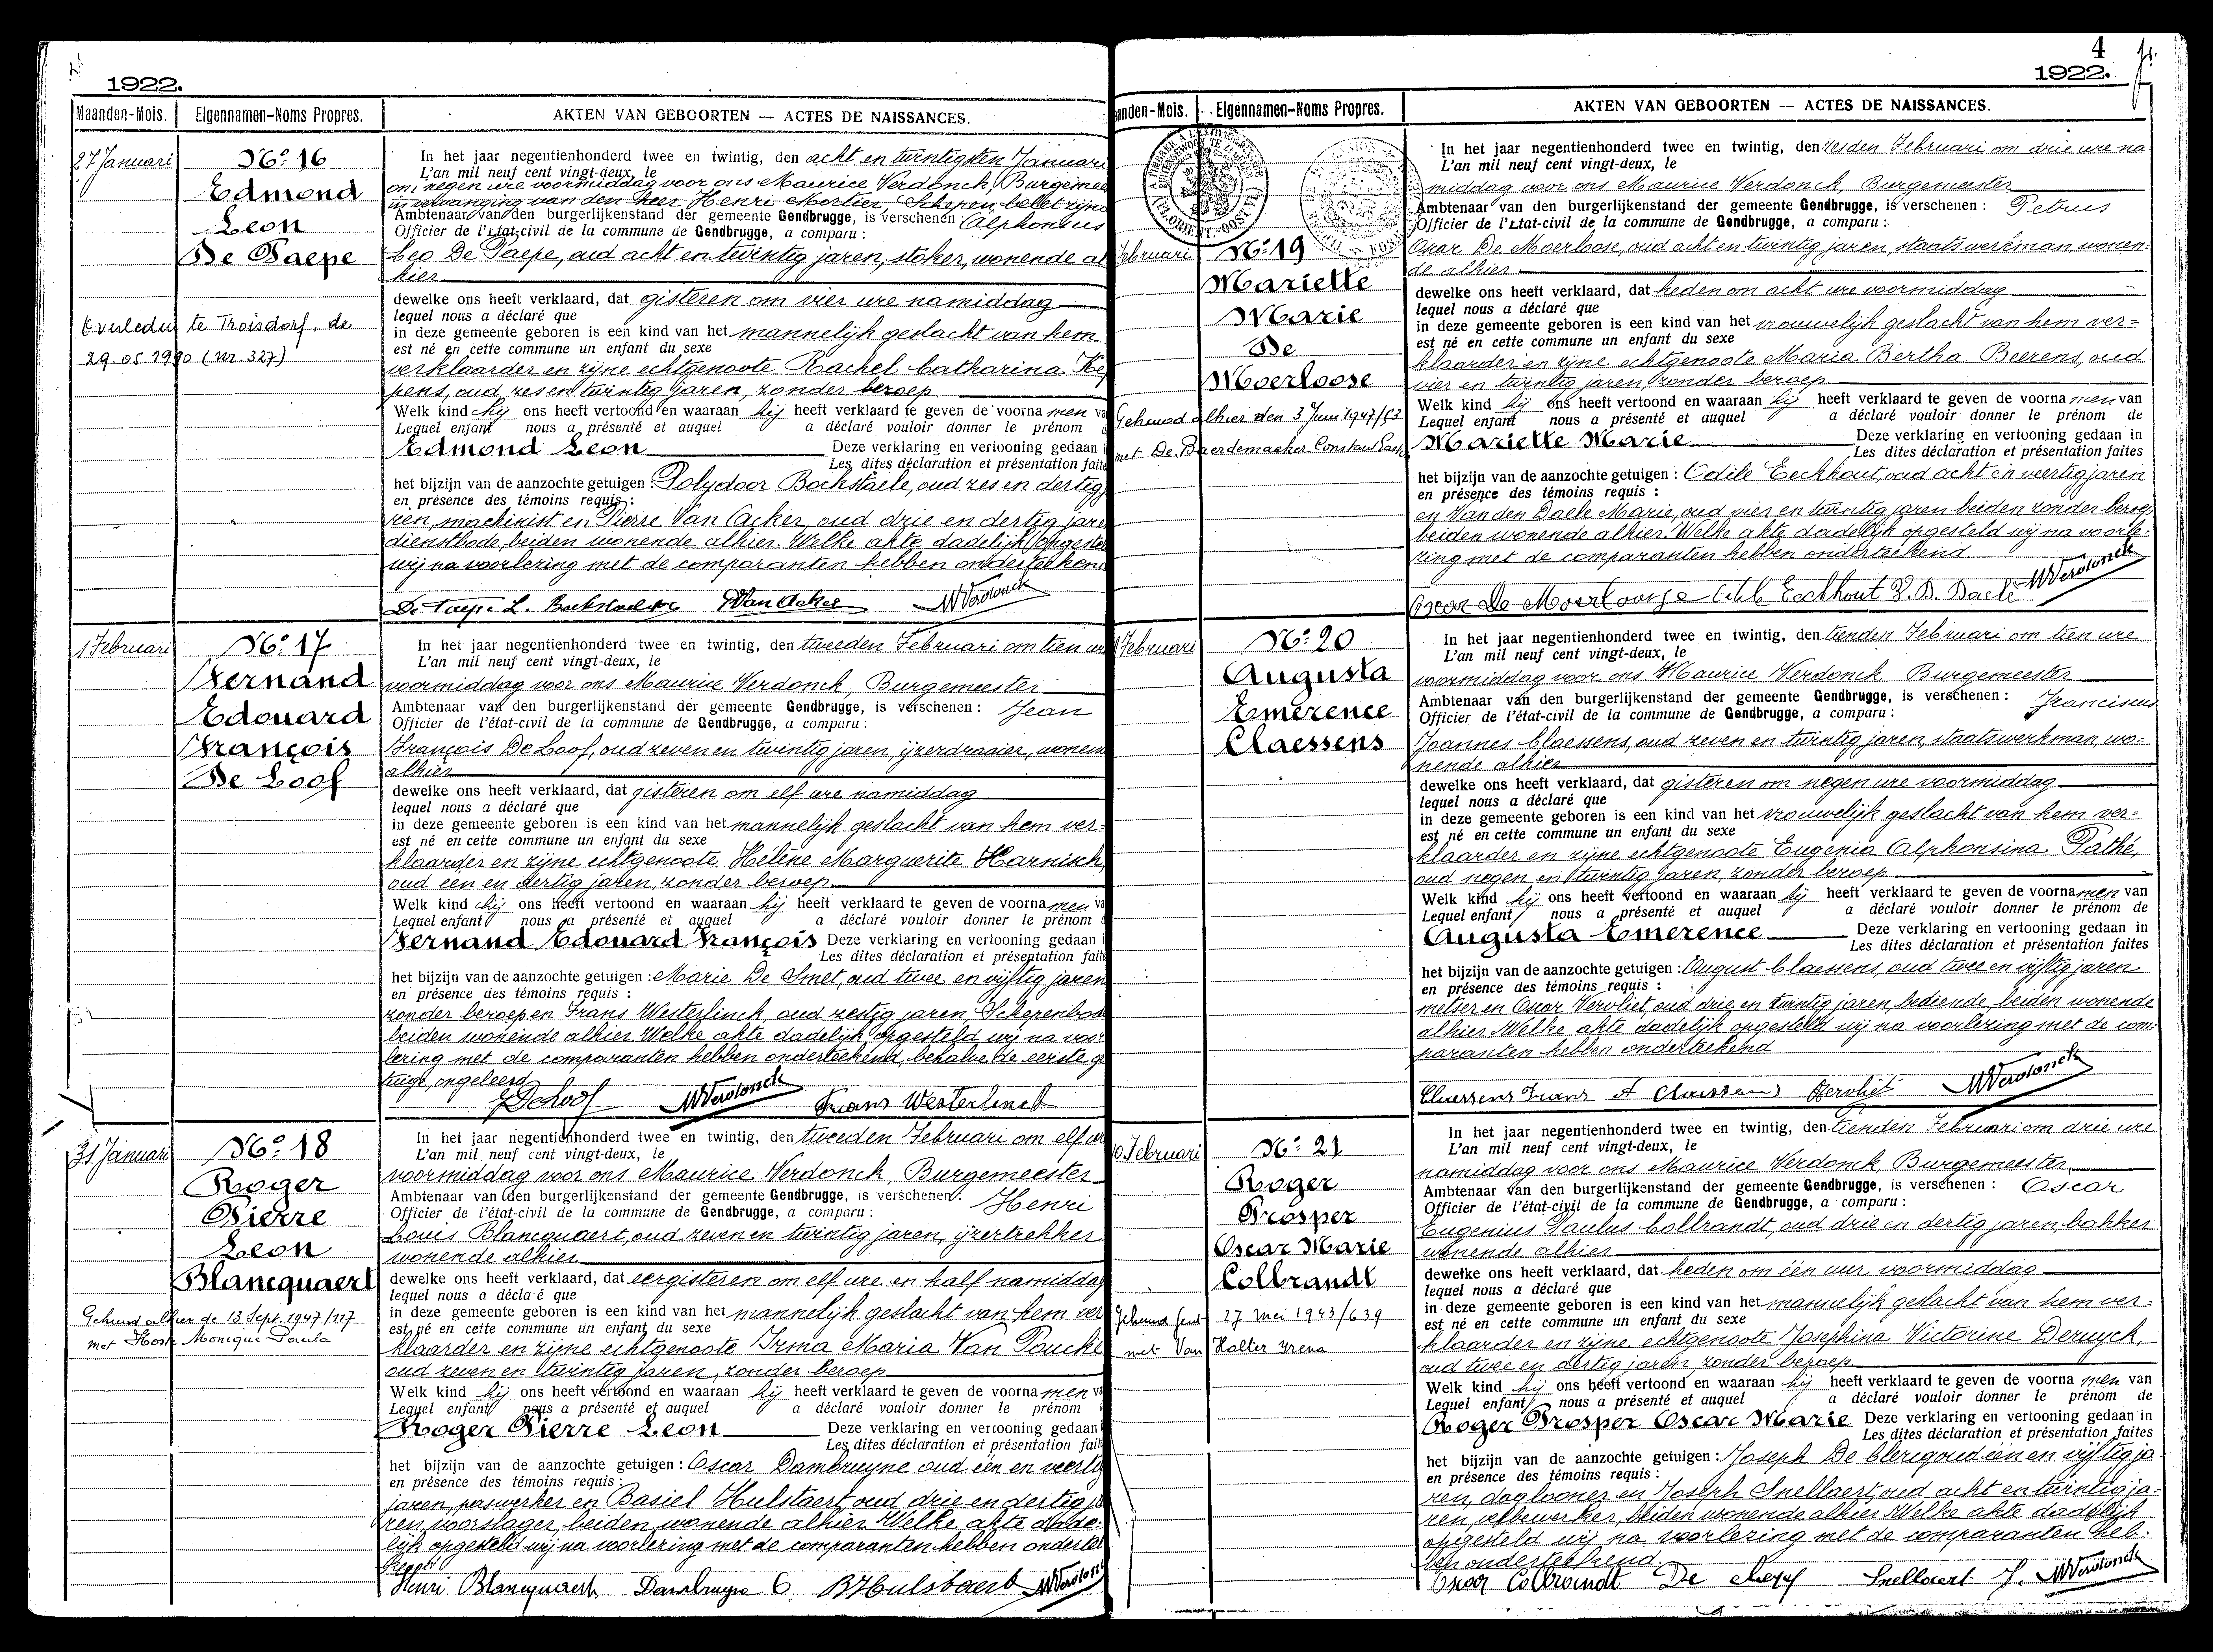 1922.
Maanden-Mois.
Eigennamen-Noms Propres.
AKTEN VAN GEBOORTEN — ACTES DE NAISSANCES.
27 Januari
No: 16
Edmond
Leon
De Paepe
Overleden te Troisdorf, de
29.05.1990 (nr. 327)
In het jaar negentienhonderd twee en twintig, den acht en twintigsten Januari
L'an mil neuf cent vingt-deux, le
om negen ure voormiddag voor ons Maurice Verdonck, Burgemee
in vervanging van den heer Henri Mortier, Schepen, belet zijnd
Ambtenaar van den burgerlijkenstand der gemeente Gendbrugge, is verschenen: Alphonsus
Officier de l'état-civil de la commune de Gendbrugge, a comparu:
Leo De Paepe, oud acht en twintig jaren, stoker, wonende al
hier
dewelke ons heeft verklaard, dat gisteren om vier ure namiddag
lequel nous a déclaré que
in deze gemeente geboren is een kind van het mannelijk geslacht van hem
est né en cette commune un enfant du sexe
verklaarder en zijne echtgenoote Rachel Catharina Ke
pens, oud zes en twintig jaren, zonder beroep
Welk kind hij ons heeft vertoond en waaraan hij heeft verklaard te geven de voorna men va
Lequel enfant nous a présenté et auquel a déclaré vouloir donner le prénom
Edmond Leon Deze verklaring en vertooning gedaan i
Les dites déclaration et présentation faite
het bijzijn van de aanzochte getuigen: Polydoor Bockstaele, oud zes en dertig
en présence des témoins requis:
ren, machinist en Pierre Van Acker, oud drie en dertig jare
dienstbode, beiden wonende alhier. Welke akte dadelijk opgeste
wij na voorlezing met de comparanten hebben onderteekend
De Paepe L. Bockstaele VanAcker MVerdonck
1 Februari
No: 17
Fernand
Edouard
François
De Loof
In het jaar negentienhonderd twee en twintig, den tweeden Februari om tien ur
L'an mil neuf cent vingt-deux, le
voormiddag voor ons Maurice Verdonck, Burgemeester
Ambtenaar van den burgerlijkenstand der gemeente Gendbrugge, is verschenen: Jean
Officier de l'état-civil de la commune de Gendbrugge, a comparu:
François De Loof, oud zeven en twintig jaren, ijzerdraaier, wonen
alhier
dewelke ons heeft verklaard, dat gisteren om elf ure namiddag
lequel nous a déclaré que
in deze gemeente geboren is een kind van het mannelijk geslacht van hem ver=
est né en cette commune un enfant du sexe
klaarder en zijne echtgenoote Hélène Marguerite Harnisch,
oud een en dertig jaren, zonder beroep
Welk kind hij ons heeft vertoond en waaraan hij heeft verklaard te geven de voorna men va
Lequel enfant nous a présenté et auquel a déclaré vouloir donner le prénom
Fernand Edouard François Deze verklaring en vertooning gedaan i
Les dites déclaration et présentation faite
het bijzijn van de aanzochte getuigen: Marie De Smet, oud twee en vijftig jaren
en présence des témoins requis:
zonder beroep en Frans Westerlinck, oud zestig jaren, Schepenbod
beiden wonende alhier. Welke akte dadelijk opgesteld wij na voor
lezing met de comparanten hebben onderteekend, behalve de eerste ge
tuige, ongeleerd
JDeLoof MVerdonck Frans Westerlinck
31 Januari
No: 18
Roger
Pierre
Leon
Blancquaert
Gehuwd alhier de 13 Sept. 1947/117
met Monique Paula
In het jaar negentienhonderd twee en twintig, den tweeden Februari om elf ur
L'an mil neuf cent vingt-deux, le
voormiddag voor ons Maurice Verdonck, Burgemeester
Ambtenaar van den burgerlijkenstand der gemeente Gendbrugge, is verschenen: Henri
Officier de l'état-civil de la commune de Gendbrugge, a comparu:
Louis Blancquaert, oud zeven en twintig jaren, ijzertrekker
wonende alhier
dewelke ons heeft verklaard, dat eergisteren om elf ure en half namiddag
lequel nous a déclaré que
in deze gemeente geboren is een kind van het mannelijk geslacht van hem ver
est né en cette commune un enfant du sexe
klaarder en zijne echtgenoote Irma Maria Van Poucke
oud zeven en twintig jaren, zonder beroep
Welk kind hij ons heeft vertoond en waaraan hij heeft verklaard te geven de voorna men v
Lequel enfant nous a présenté et auquel a déclaré vouloir donner le prénom
Roger Pierre Leon Deze verklaring en vertooning gedaan
Les dites déclaration et présentation fait
het bijzijn van de aanzochte getuigen: Oscar Dambruyne oud een en veertig
en présence des témoins requis:
jaren, paswerker en Basiel Hulstaert, oud drie en dertig ja
ren, voorslager, beiden wonende alhier. Welke akte dade=
lijk opgesteld wij na voorlezing met de comparanten hebben onderteek
Henri Blancquaert Dambruyne O. BHulstaert MVerdonck
4
1922.
anden-Mois.
Eigennamen-Noms Propres.
AKTEN VAN GEBOORTEN — ACTES DE NAISSANCES.
Februari
No: 19
Mariette
Marie
De
Moerloose
Gehuwd alhier den 3 Juni 1947/53
met De Baerdemaeker Constant
In het jaar negentienhonderd twee en twintig, den zesden Februari om drie ure na
L'an mil neuf cent vingt-deux, le
middag voor ons Maurice Verdonck, Burgemeester
Ambtenaar van den burgerlijkenstand der gemeente Gendbrugge, is verschenen: Petrus
Officier de l'état-civil de la commune de Gendbrugge, a comparu:
Oscar De Moerloose, oud acht en twintig jaren, staatswerkman, wonen=
de alhier
dewelke ons heeft verklaard, dat heden om acht ure voormiddag
lequel nous a déclaré que
in deze gemeente geboren is een kind van het vrouwelijk geslacht van hem ver=
est né en cette commune un enfant du sexe
klaarder en zijne echtgenoote Maria Bertha Beerens, oud
vier en twintig jaren, zonder beroep
Welk kind hij ons heeft vertoond en waaraan hij heeft verklaard te geven de voorna men van
Lequel enfant nous a présenté et auquel a déclaré vouloir donner le prénom de
Mariette Marie Deze verklaring en vertooning gedaan in
Les dites déclaration et présentation faites
het bijzijn van de aanzochte getuigen: Odile Eeckhout, oud acht en veertig jaren
en présence des témoins requis:
en Van den Daele Marie, oud vier en twintig jaren beiden zonder beroep
beiden wonende alhier. Welke akte dadelijk opgesteld wij na voorle=
zing met de comparanten hebben onderteekend
Oscar De Moerloose Odile Eeckhout V.D. Daele MVerdonck
Februari
No: 20
Augusta
Emerence
Claessens
In het jaar negentienhonderd twee en twintig, den tienden Februari om tien ure
L'an mil neuf cent vingt-deux, le
voormiddag voor ons Maurice Verdonck Burgemeester
Ambtenaar van den burgerlijkenstand der gemeente Gendbrugge, is verschenen: Franciscus
Officier de l'état-civil de la commune de Gendbrugge, a comparu:
Joannes Claessens, oud zeven en twintig jaren, staatswerkman, wo=
nende alhier
dewelke ons heeft verklaard, dat gisteren om negen ure voormiddag
lequel nous a déclaré que
in deze gemeente geboren is een kind van het vrouwelijk geslacht van hem ver=
est né en cette commune un enfant du sexe
klaarder en zijne echtgenoote Eugenia Alphonsina Pathé,
oud negen en twintig jaren, zonder beroep
Welk kind hij ons heeft vertoond en waaraan hij heeft verklaard te geven de voorna men van
Lequel enfant nous a présenté et auquel a déclaré vouloir donner le prénom de
Augusta Emerence Deze verklaring en vertooning gedaan in
Les dites déclaration et présentation faites
het bijzijn van de aanzochte getuigen: August Claessens, oud twee en vijftig jaren
en présence des témoins requis:
metser en Oscar Vervliet, oud drie en twintig jaren, bediende, beiden wonende
alhier. Welke akte dadelijk opgesteld wij na voorlezing met de com=
paranten hebben onderteekend
Claessens Frans A Claessens Vervliet MVerdonck
10 Februari
No: 21
Roger
Prosper
Oscar Marie
Colbrandt
Gehuwd Gent 27 Mei 1943/639
met Van Halter Irena
In het jaar negentienhonderd twee en twintig, den tienden Februari om drie ure
L'an mil neuf cent vingt-deux, le
namiddag voor ons Maurice Verdonck, Burgemeester
Ambtenaar van den burgerlijkenstand der gemeente Gendbrugge, is verschenen: Oscar
Officier de l'état-civil de la commune de Gendbrugge, a comparu:
Eugenius Paulus Colbrandt, oud drie en dertig jaren, bakker
wonende alhier
dewelke ons heeft verklaard, dat heden om één uur voormiddag
lequel nous a déclaré que
in deze gemeente geboren is een kind van het mannelijk geslacht van hem ver=
est né en cette commune un enfant du sexe
klaarder en zijne echtgenoote Josephina Victorine Deruyck,
oud twee en dertig jaren, zonder beroep
Welk kind hij ons heeft vertoond en waaraan hij heeft verklaard te geven de voorna men van
Lequel enfant nous a présenté et auquel a déclaré vouloir donner le prénom de
Roger Prosper Oscar Marie Deze verklaring en vertooning gedaan in
Les dites déclaration et présentation faites
het bijzijn van de aanzochte getuigen: Joseph De Clercq oud een en vijftig ja
en présence des témoins requis:
ren, daglooner en Joseph Snellaert, oud acht en twintig ja=
ren, beiden wonende alhier. Welke akte dadelijk
opgesteld wij na voorlezing met de comparanten heb=
ben onderteekend.
Oscar Colbrandt De Snellaert J. MVerdonck